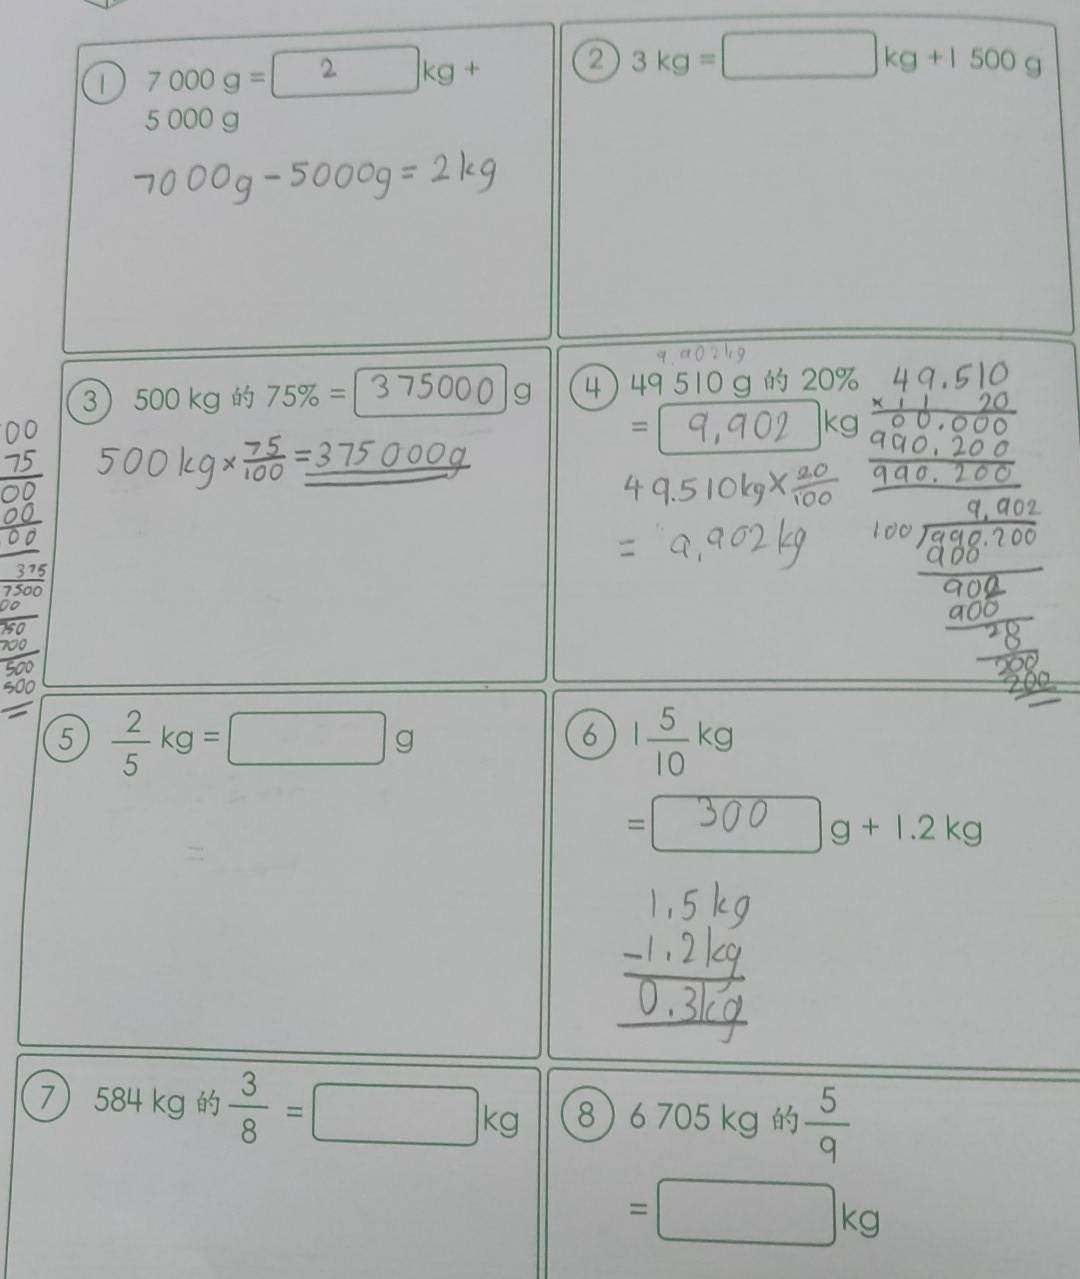 ① 7 000 g = 2 kg +
5 000 g
7000g - 5000g = 2kg
② 3 kg = kg + 1 500 g
③ 500 kg 的 75% = 375000 g
500kg × 75/100 = 375000g
00
75
00
00
00
375
7500
00
750
700
500
500
9.902kg
④ 49 510 g 的 20%
= 9.902 kg
49.510kg × 20/100
= 9.902kg
49.510
× 20
00.000
990.200
990.200
9.902
100 990.200
900
902
900
28
200
200
⑤ 2/5 kg = g
=
⑥ 1 5/10 kg
= 300 g + 1.2 kg
1.5kg
-1.2kg
0.3kg
⑦ 584 kg 的 3/8 = kg
⑧ 6 705 kg 的 5/9
= kg